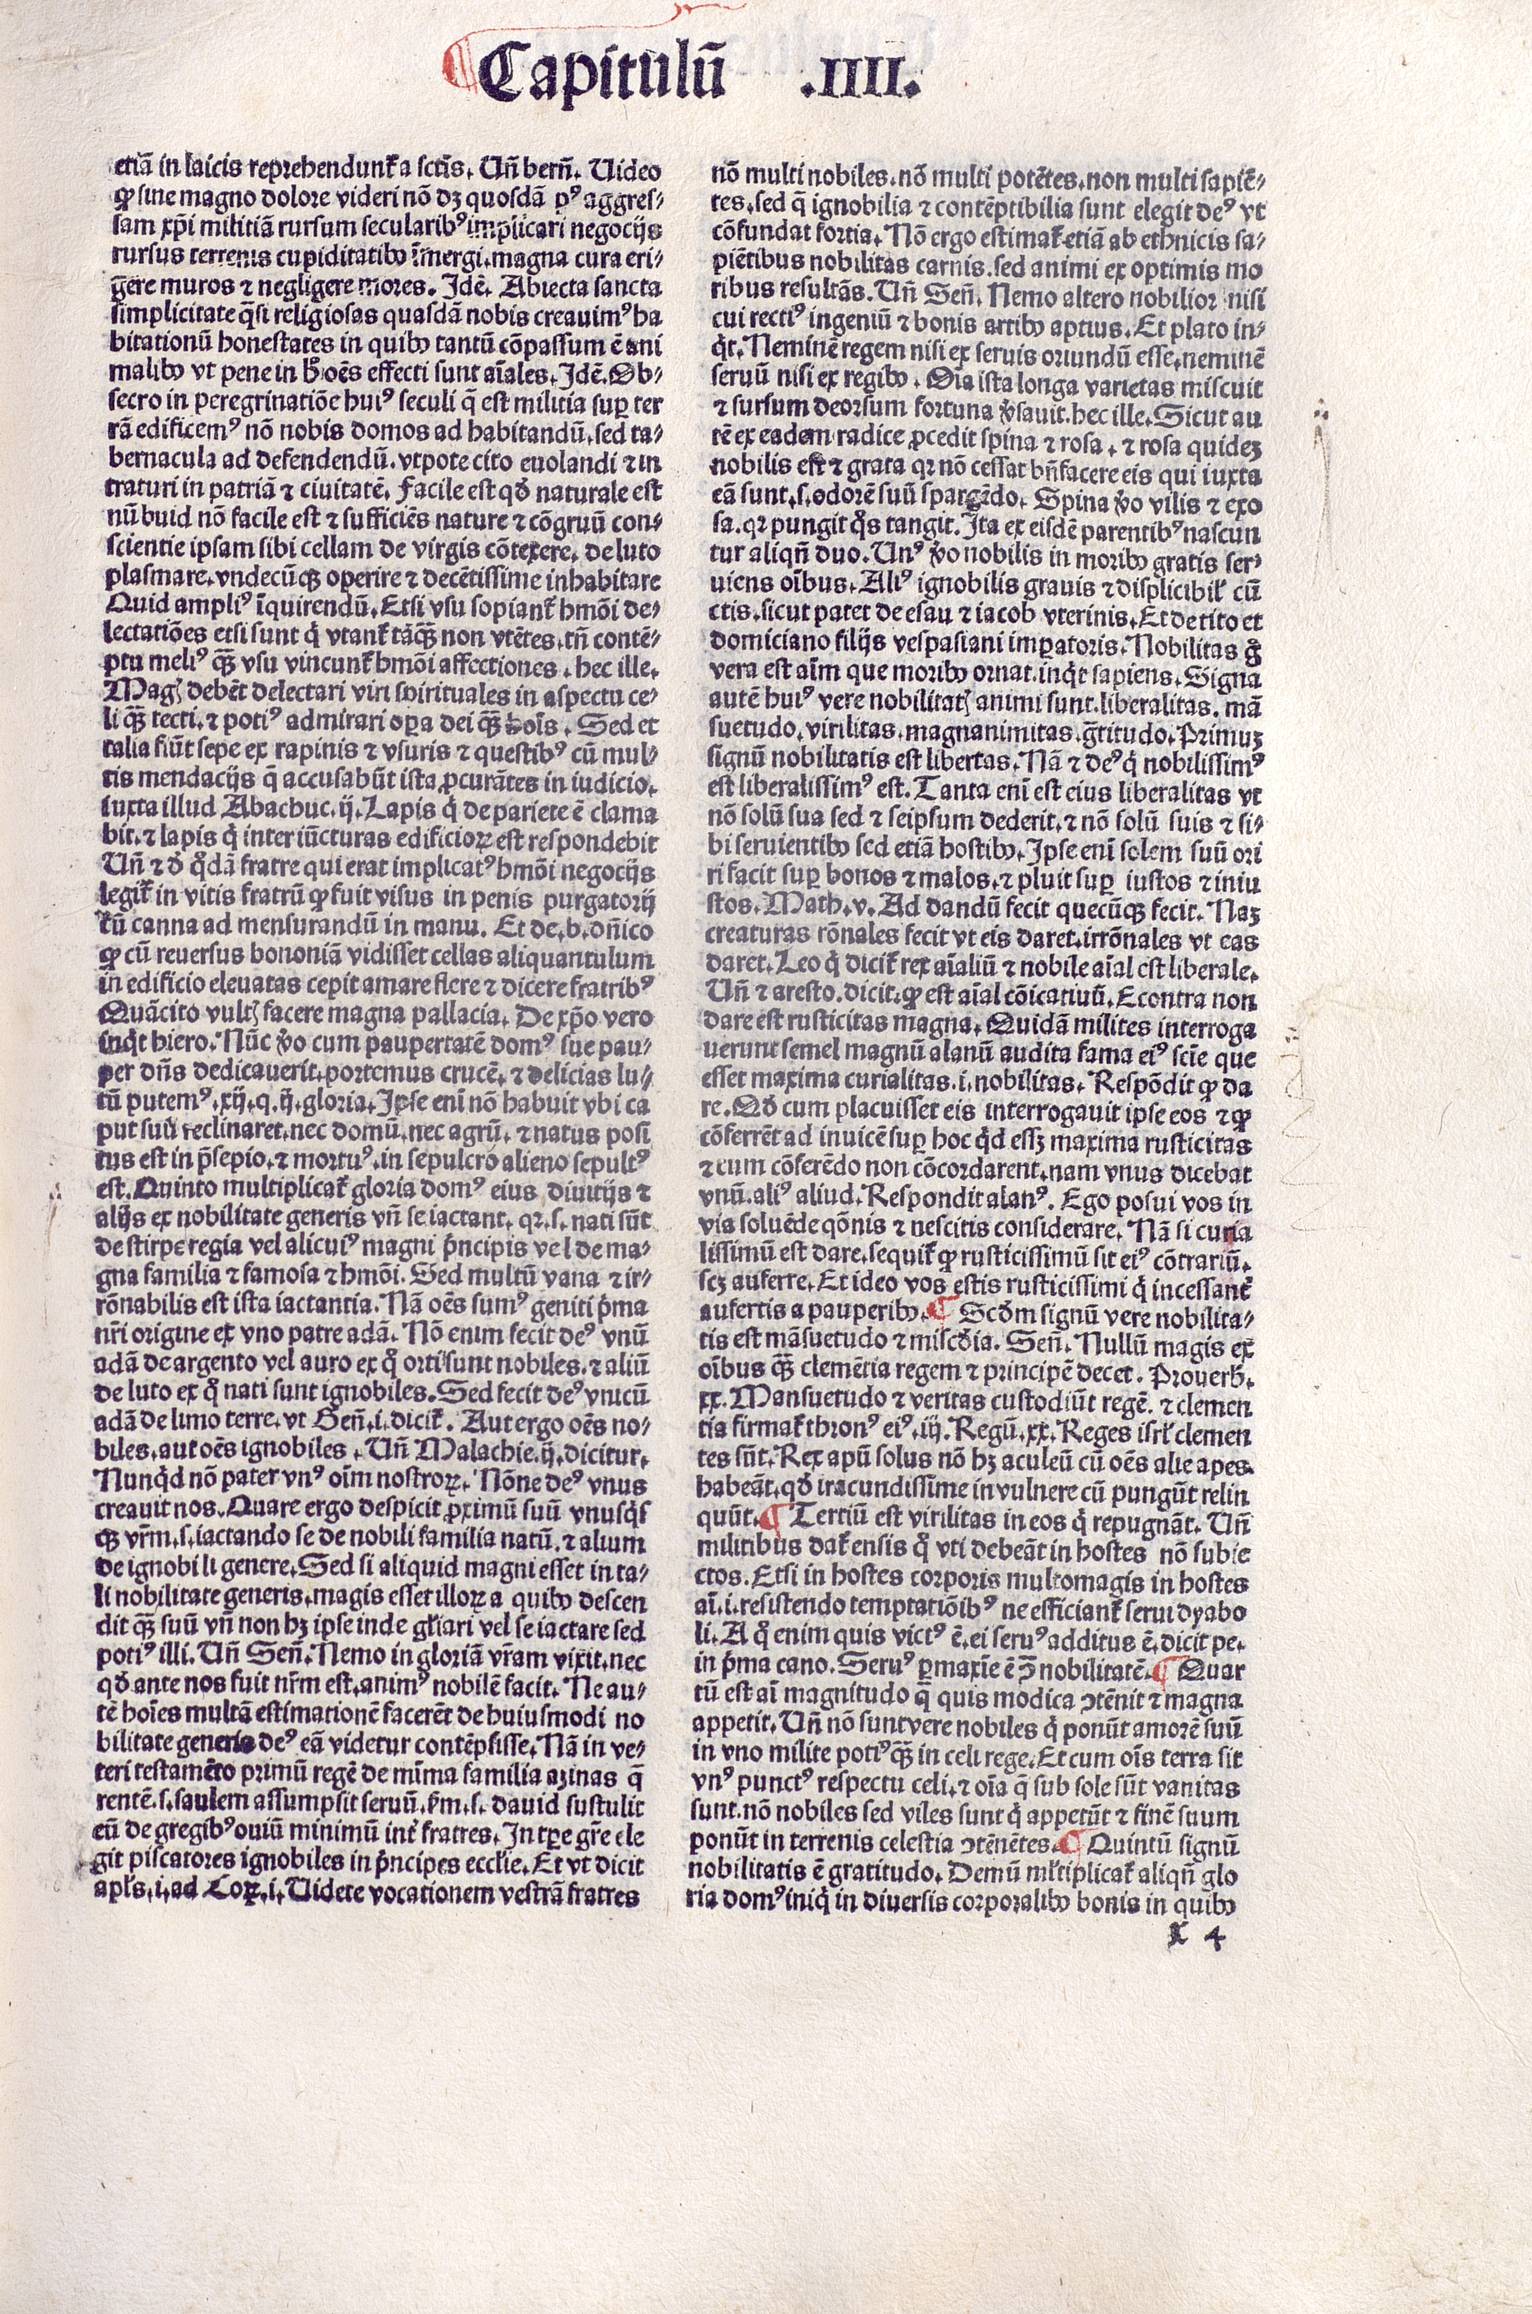 Capitulū .IIII.
etiā in laicis reprehendunt᷑ a sctīs. Uñ berñ. Uideo
ꝙ sine magno dolore videri nō dꝫ quosdā pꝰ aggres-
sam xp̄i militiā rursum secularibꝰ implicari negocijs
rursus terrenis cupiditatibꝰ īmergi. magna cura eri-
gere muros ⁊ negligere mores. Idē. Abiecta sancta
simplicitate q̄si religiosas quasdā nobis creauimꝰ ha
bitationū honestates in quibꝰ tantū cōpassum ē ani
malibꝰ vt pene in h̄ oēs effecti sunt aīales. Idē. Ob-
secro in peregrinatiōe huiꝰ seculi q̄ est militia suꝑ ter
rā edificemꝰ nō nobis domos ad habitandū, sed ta-
bernacula ad defendendū. vtpote cito euolandi ⁊ in
traturi in patriā ⁊ ciuitatē. Facile est qd̛ naturale est
nū buid nō facile est ⁊ sufficiēs nature ⁊ cōgruū con-
scientie ipsam sibi cellam de virgis cōtexere. de luto
plasmare. vndecūqꝫ operire ⁊ decētissime inhabitare
Quid ampliꝰ īquirendū. Etsi vsu sopiant᷑ hmōi de-
lectatiōes etsi sunt q̇ vtant᷑ tāqꝫ̄ non vtētes. tñ contē-
ptu meliꝰ qꝫ̄ vsu vincunt᷑ hmōi affectiones. hec ille.
Magꝭ debēt delectari viri spirituales in aspectu ce-
li qꝫ̄ tecti. ⁊ potiꝰ admirari oꝑa dei qꝫ̄ hoīs. Sed et
talia fiūt sepe ex rapinis ⁊ vsuris ⁊ questibꝰ cū mul-
tis mendacijs q̄ accusabūt ista ꝓcurātes in iudicio.
iuxta illud Abachuc. ij. Lapis q̇ de pariete ē clama
bit. ⁊ lapis q̇ inter iūcturas edificioꝝ est respondebit
Uñ ⁊ d̛ q̇dā fratre qui erat implicatꝰ hmōi negocijs
legit᷑ in vitis fratrū ꝙ fuit visus in penis purgatorij
cū canna ad mensurandū in manu. Et de. b. dñico
ꝙ cū reuersus bononiā vidisset cellas aliquantulum
in edificio eleuatas cepit amare flere ⁊ dicere fratribꝰ
Quācito vultꝭ facere magna pallacia. De xp̄o vero
inq̇t hiero. Nūc v̛o cum paupertatē domꝰ sue pau-
per dñs dedicauerit. portemus crucē. ⁊ delicias lu-
tū putemꝰ. xij. q. ij. gloria. Ipse enī nō habuit vbi ca
put suū reclinaret. nec domū. nec agrū. ⁊ natus posi
tus est in p̄sepio. ⁊ mortuꝰ. in sepulcro alieno sepultꝰ
est. Quinto multiplicat᷑ gloria domꝰ eius diuitijs ⁊
alijs ex nobilitate generis vñ se iactant. qꝛ. s. nati sūt
de stirpe regia vel alicuiꝰ magni p̛ncipis vel de ma-
gna familia ⁊ famosa ⁊ hmōi. Sed multū vana ⁊ ir-
rōnabilis est ista iactantia. Nā oēs sumꝰ geniti p̛ma
nr̄i origine ex vno patre adā. Nō enim fecit deꝰ vnū
adā de argento vel auro ex q̇ orti sunt nobiles. ⁊ aliū
de luto ex q̇ nati sunt ignobiles. Sed fecit deꝰ vnicū
adā de limo terre. vt Geñ. i. dicit᷑. Aut ergo oēs no-
biles. aut oēs ignobiles. Uñ Malachie. ij. dicitur.
Nunq̇d nō pater vnꝰ oīm nostroꝝ. Nōne deꝰ vnus
creauit nos. Quare ergo despicit ꝓximū suū vnusq̇s
qꝫ vr̄m. s. iactando se de nobili familia natū. ⁊ alium
de ignobili genere. Sed si aliquid magni esset in ta-
li nobilitate generis. magis esset illoꝝ a quibꝰ descen
dit qꝫ̄ suū vñ non hꝫ ipse inde gl̄iari vel se iactare sed
potiꝰ illi. Uñ Señ. Nemo in gloriā vr̄am vixit. nec
qd̛ ante nos fuit nr̄m est. animꝰ nobilē facit. Ne au-
tē hoīes multā estimationē facerēt de huiusmodi no
bilitate generis deꝰ eā videtur contēpsisse. Nā in ve-
teri testamēto primū regē de mīma familia azinas q̄
rentē. s. saulem assumpsit seruū. Itm. s. dauid sustulit
eū de gregibꝰ ouiū minimū int̛ fratres. In tꝑe gr̄e ele
git piscatores ignobiles in p̛ncipes eccl̄ie. Et vt dicit
apl̄s. i. ad Coꝝ. i. Uidete vocationem vestrā fratres
nō multi nobiles. nō multi potētes. non multi sapiē-
tes. sed q̄ ignobilia ⁊ contēptibilia sunt elegit deꝰ vt
cōfundat fortia. Nō ergo estimat᷑ etiā ab ethnicis sa-
piētibus nobilitas carnis. sed animi ex optimis mo
ribus resultās. Uñ Señ. Nemo altero nobilior nisi
cui rectiꝰ ingeniū ⁊ bonis artibꝰ aptius. Et plato in-
q̇t. Neminē regem nisi ex seruis oriundū esse. neminē
seruū nisi ex regibꝰ. Oīa ista longa varietas miscuit
⁊ sursum deorsum fortuna v̛sauit. hec ille. Sicut au
tē ex eadem radice ꝓcedit spina ⁊ rosa. ⁊ rosa quideꝫ
nobilis est ⁊ grata qꝛ nō cessat bñfacere eis qui iuxta
eā sunt. s. odorē suū spargēdo. Spina v̛o vilis ⁊ exo
sa. qꝛ pungit q̇s tangit. Ita ex eisdē parentibꝰ nascun
tur aliqñ duo. Unꝰ v̛o nobilis in moribꝰ gratis ser-
uiens oībus. Aliꝰ ignobilis grauis ⁊ displicibil᷑ cū
ctis. sicut patet de esau ⁊ iacob vterinis. Et de tito et
domiciano filijs vespasiani imꝑatoris. Nobilitas g̛
vera est aīm que moribꝰ ornat. inq̇t sapiens. Signa
autē huiꝰ vere nobilitatꝭ animi sunt. liberalitas. mā
suetudo. virilitas. magnanimitas. gr̄titudo. Primuꝫ
signū nobilitatis est libertas. Nā ⁊ deꝰ q̇ nobilissimꝰ
est liberalissimꝰ est. Tanta enī est eius liberalitas vt
nō solū sua sed ⁊ seipsum dederit. ⁊ nō solū suis ⁊ si-
bi seruientibꝰ sed etiā hostibꝰ. Ipse enī solem suū ori
ri facit suꝑ bonos ⁊ malos. ⁊ pluit suꝑ iustos ⁊ iniu
stos. Math. v. Ad dandū fecit quecūqꝫ fecit. Naꝫ
creaturas rōnales fecit vt eis daret. irrōnales vt eas
daret. Leo q̇ dicit᷑ rex aīaliū ⁊ nobile aīal est liberale.
Uñ ⁊ aresto. dicit. ꝙ est aīal cōicatiuū. Econtra non
dare est rusticitas magna. Quidā milites interroga
uerunt semel magnū alanū audita fama eiꝰ scīe que
esset maxima curialitas. i. nobilitas. Respōdit ꝙ da
re. Qd̛ cum placuisset eis interrogauit ipse eos ⁊ ꝙ
cōferrēt ad inuicē suꝑ hoc q̇d essꝫ maxima rusticitas
⁊ cum cōferēdo non cōcordarent. nam vnus dicebat
vnū. aliꝰ aliud. Respondit alanꝰ. Ego posui vos in
via soluēde qōnis ⁊ nescitis considerare. Nā si curia
lissimū est dare. sequit᷑ ꝙ rusticissimū sit eiꝰ cōtrariū.
scꝫ auferre. Et ideo vos estis rusticissimi q̇ incessant̛
aufertis a pauperibꝰ. ¶ Scd̛m signū vere nobilita-
tis est māsuetudo ⁊ misc̛dia. Señ. Nullū magis ex
oībus qꝫ̄ clemētia regem ⁊ principē decet. Prouerb̛.
xx. Mansuetudo ⁊ veritas custodiūt regē. ⁊ clemen
tia firmat᷑ thronꝰ eiꝰ. iij. Regū. xx. Reges isrl̄ clemen
tes sūt. Rex apū solus nō hꝫ aculeū cū oēs alie apes
habeāt. qd̛ iracundissime in vulnere cū pungūt relin
quūt. ¶ Tertiū est virilitas in eos q̇ repugnāt. Uñ
militibus dat᷑ ensis q̇ vti debeāt in hostes nō subie
ctos. Etsi in hostes corporis multomagis in hostes
aī. i. resistendo temptatiōibꝰ ne efficiant᷑ serui dyabo
li. A q̇ enim quis victꝰ ē. ei seruꝰ additus ē. dicit pe.
in p̛ma cano. Seruꝰ ꝑmaxīe ē ꝯ̄ nobilitatē. ¶ Quar
tū est aī magnitudo q̄ quis modica ꝯtēnit ⁊ magna
appetit. Uñ nō sunt vere nobiles q̇ ponūt amorē suū
in vno milite potiꝰ qꝫ̄ in celi rege. Et cum oīs terra sit
vnꝰ punctꝰ respectu celi. ⁊ oīa q̄ sub sole sūt vanitas
sunt. nō nobiles sed viles sunt q̇ appetūt ⁊ finē suum
ponūt in terrenis celestia ꝯtēnētes. ¶ Quintū signū
nobilitatis ē gratitudo. Demū ml̄tiplicat᷑ aliqñ glo
ria domꝰ iniq̇ in diuersis corporalibꝰ bonis in quibꝰ
x 4